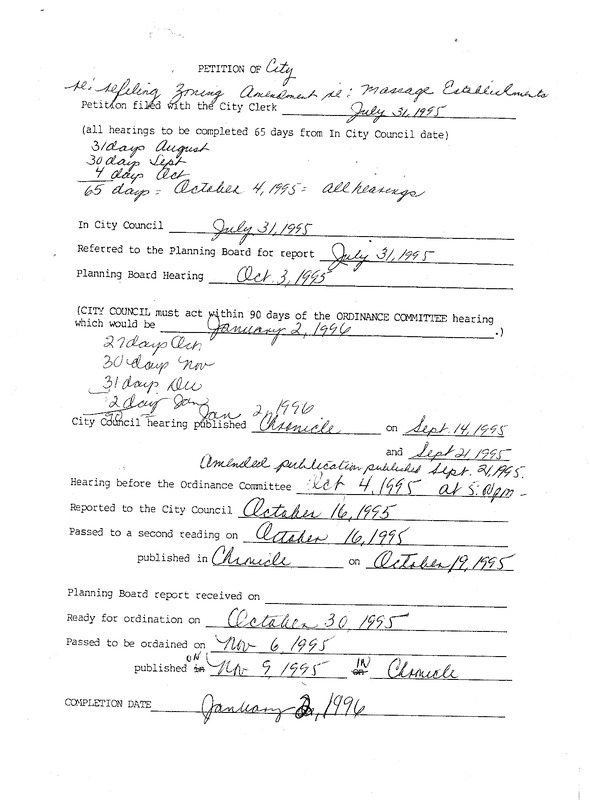 PETITION OF City
re: refiling Zoning Amendment re: Massage Establishments
Petition filed with the City Clerk July 31, 1995
(all hearings to be completed 65 days from In City Council date)
31 days August
30 days Sept
4 days Oct
65 days = October 4, 1995 = all hearings
In City Council July 31, 1995
Referred to the Planning Board for report July 31, 1995
Planning Board Hearing Oct. 3, 1995
(CITY COUNCIL must act within 90 days of the ORDINANCE COMMITTEE hearing
which would be January 2, 1996 .)
27 days Oct
30 days Nov
31 days Dec
2 days Jan
90 Jan 2, 1996
City Council hearing published Chronicle on Sept. 14, 1995
and Sept 21 1995
Amended publication published Sept. 21, 1995.
Hearing before the Ordinance Committee Oct 4, 1995 at 5:00 pm -
Reported to the City Council October 16, 1995
Passed to a second reading on October 16, 1995
published in Chronicle on October 19, 1995
Planning Board report received on
Ready for ordination on October 30, 1995
Passed to be ordained on Nov 6, 1995
published in ON Nov 9, 1995 on IN Chronicle
COMPLETION DATE January 2, 1996